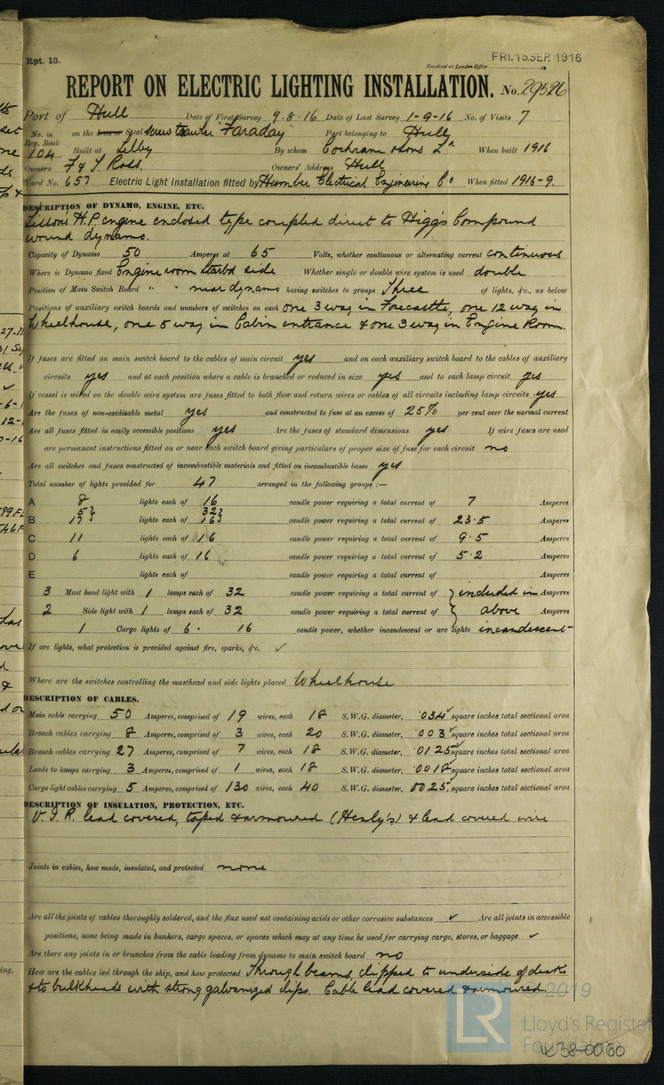 Rpt. 13.
Received at London Office
FRI. 15 SEP. 1916
REPORT ON ELECTRIC LIGHTING INSTALLATION. No. 29526
Port of Hull Date of First Survey 9-8-16 Date of Last Survey 1-9-16 No. of Visits 7
No. in Reg. Book 104 on the Iron or Steel Screw trawler "Faraday" Port belonging to Hull
Built at Selby By whom Cochrane & Sons Ld When built 1916
Owners F & T Ross. Owners' Address Hull
Yard No. 657 Electric Light Installation fitted by Humber Electrical Engineering Co When fitted 1916-9.
DESCRIPTION OF DYNAMO, ENGINE, ETC.
Sissons H.P. engine enclosed type coupled direct to Higg's Compound
wound dynamo.
Capacity of Dynamo 50 Amperes at 65 Volts, whether continuous or alternating current continuous
Where is Dynamo fixed Engine room starbd side Whether single or double wire system is used double
Position of Main Switch Board " " near dynamo having switches to groups Three of lights, &c., as below
Positions of auxiliary switch boards and numbers of switches on each one 3 way in Forecastle, one 12 way in
Wheelhouse, one 5 way in Cabin entrance & one 3 way in Engine Room.
If fuses are fitted on main switch board to the cables of main circuit yes and on each auxiliary switch board to the cables of auxiliary
circuits yes and at each position where a cable is branched or reduced in size yes and to each lamp circuit yes
If vessel is wired on the double wire system are fuses fitted to both flow and return wires or cables of all circuits including lamp circuits yes
Are the fuses of non-oxidizable metal yes and constructed to fuse at an excess of 25% per cent over the normal current
Are all fuses fitted in easily accessible positions yes Are the fuses of standard dimensions yes If wire fuses are used
are permanent instructions fitted on or near each switch board giving particulars of proper size of fuse for each circuit no
Are all switches and fuses constructed of incombustible materials and fitted on incombustible bases yes
Total number of lights provided for 47 arranged in the following groups :—
A 8 lights each of 16 candle power requiring a total current of 7 Amperes
5 32
B 17 lights each of 16 candle power requiring a total current of 23.5 Amperes
C 11 lights each of 16 candle power requiring a total current of 9.5 Amperes
D 6 lights each of 16 candle power requiring a total current of 5.2 Amperes
E lights each of candle power requiring a total current of Amperes
3 Mast head light with 1 lamps each of 32 candle power requiring a total current of included in Amperes
2 Side light with 1 lamps each of 32 candle power requiring a total current of above Amperes
1 Cargo lights of 6 . 16 candle power, whether incandescent or arc lights incandescent
If arc lights, what protection is provided against fire, sparks, &c. ✓
Where are the switches controlling the masthead and side lights placed Wheelhouse
DESCRIPTION OF CABLES.
Main cable carrying 50 Amperes, comprised of 19 wires, each 18 S.W.G. diameter, .034 square inches total sectional area
Branch cables carrying 8 Amperes, comprised of 3 wires, each 20 S.W.G. diameter, .003 square inches total sectional area
Branch cables carrying 27 Amperes, comprised of 7 wires, each 18 S.W.G. diameter, .0125 square inches total sectional area
Leads to lamps carrying 3 Amperes, comprised of 1 wires, each 18 S.W.G. diameter, .0018 square inches total sectional area
Cargo light cables carrying 5 Amperes, comprised of 130 wires, each 40 S.W.G. diameter, .0025 square inches total sectional area
DESCRIPTION OF INSULATION, PROTECTION, ETC.
V.I.R. lead covered, taped & armoured (Henly's) & lead covered wire
Joints in cables, how made, insulated, and protected none
Are all the joints of cables thoroughly soldered, and the flux used not containing acids or other corrosive substances ✓ Are all joints in accessible
positions, none being made in bunkers, cargo spaces, or spaces which may at any time be used for carrying cargo, stores, or baggage ✓
Are there any joints in or branches from the cable leading from dynamo to main switch board no
How are the cables led through the ship, and how protected Through beams, clipped to underside of decks
& to bulkheads with strong galvanized clips. Cable lead covered & armoured.
© 2019
LR
Lloyd's Register
Foundation